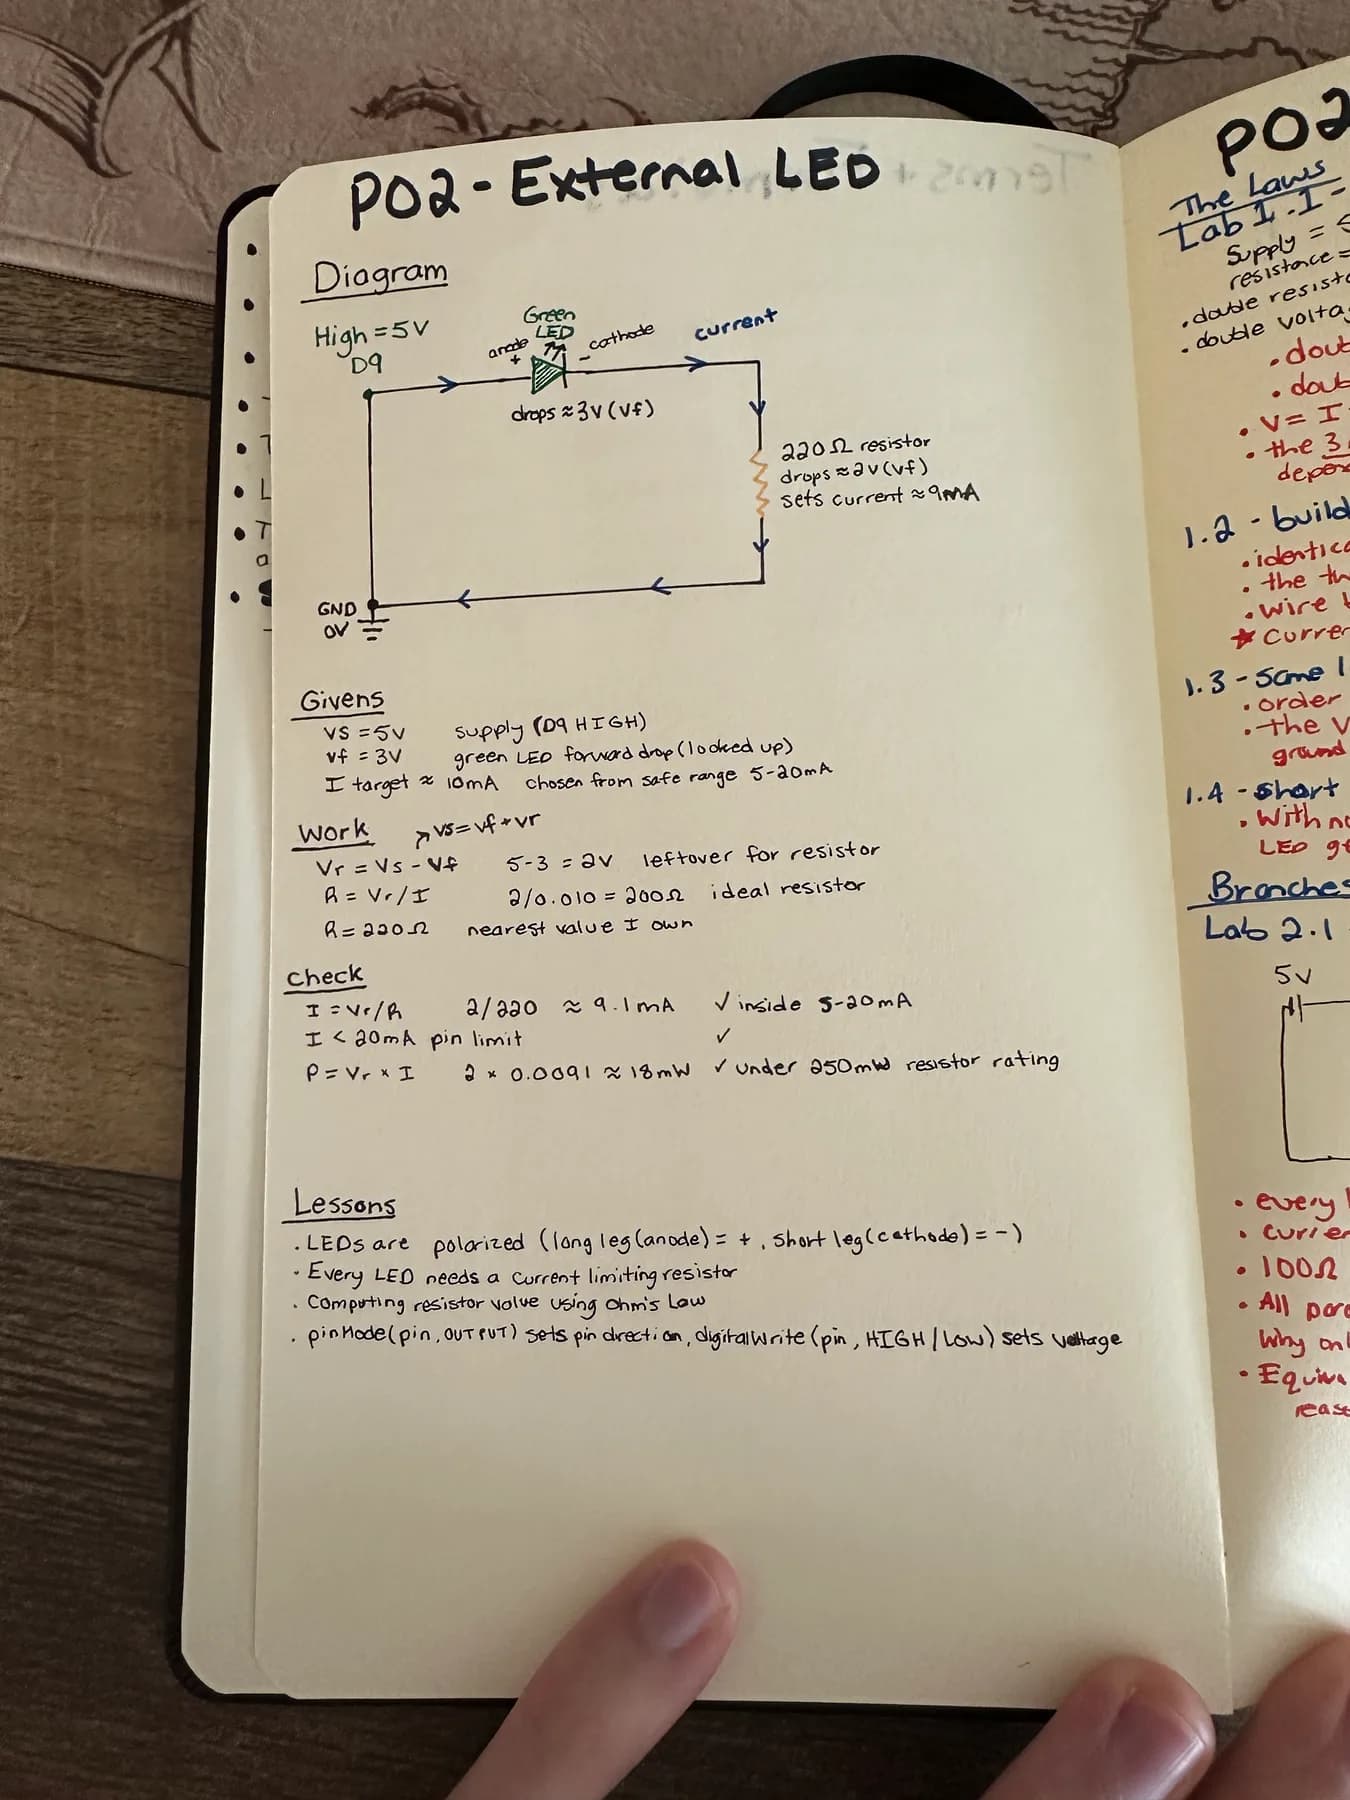 PO2 - External LED
Diagram
High = 5V
D9
Green
LED
anode
+
- cathode
current
drops ≈ 3V (Vf)
220Ω resistor
drops ≈ 2V (Vf)
sets current ≈ 9mA
GND
0V
Givens
VS = 5V supply (D9 HIGH)
Vf = 3V green LED forward drop (looked up)
I target ≈ 10mA chosen from safe range 5-20mA
Work ↗ VS = Vf + Vr
Vr = Vs - Vf 5-3 = 2V leftover for resistor
R = Vr/I 2/0.010 = 200Ω ideal resistor
R = 220Ω nearest value I own
Check
I = Vr/R 2/220 ≈ 9.1mA ✓ inside 5-20mA
I < 20mA pin limit ✓
P = Vr × I 2 × 0.0091 ≈ 18mW ✓ under 250mW resistor rating
Lessons
. LEDs are polarized (long leg (anode) = +, short leg (cathode) = -)
. Every LED needs a current limiting resistor
. Computing resistor value using Ohm's Law
. pinMode(pin, OUTPUT) sets pin direction, digitalWrite(pin, HIGH/LOW) sets voltage
PO2
The Laws
Lab 1.1 -
Supply =
resistance =
. double
. double
. V = I
. the 3
1.2 - build
. the
. wire
1.3 - Same
. order
. the
ground
1.4 - short
. With
LED
Branches
Lab 2.1
5V
. every
. 100Ω
. All
Why